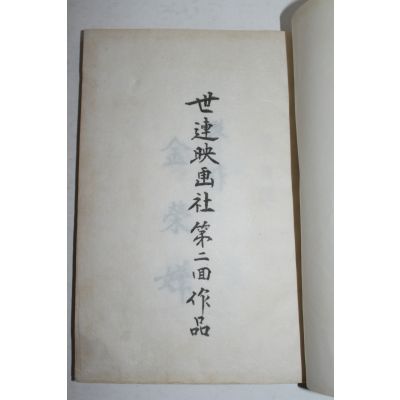 世連映画社第二回作品